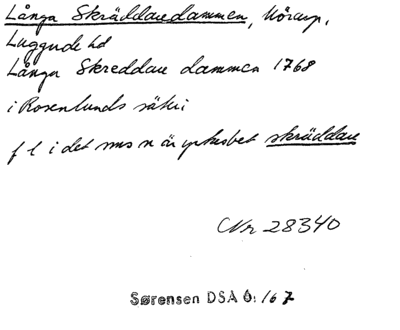 Långa Skräddaredammen, Mörarp,
Luggude hd
Långa Skreddare dammen 1768
i Rosenlunds säteri
f l i det ms n är yrkesbet skräddare
Nr 28340
Sørensen DSA 6:167